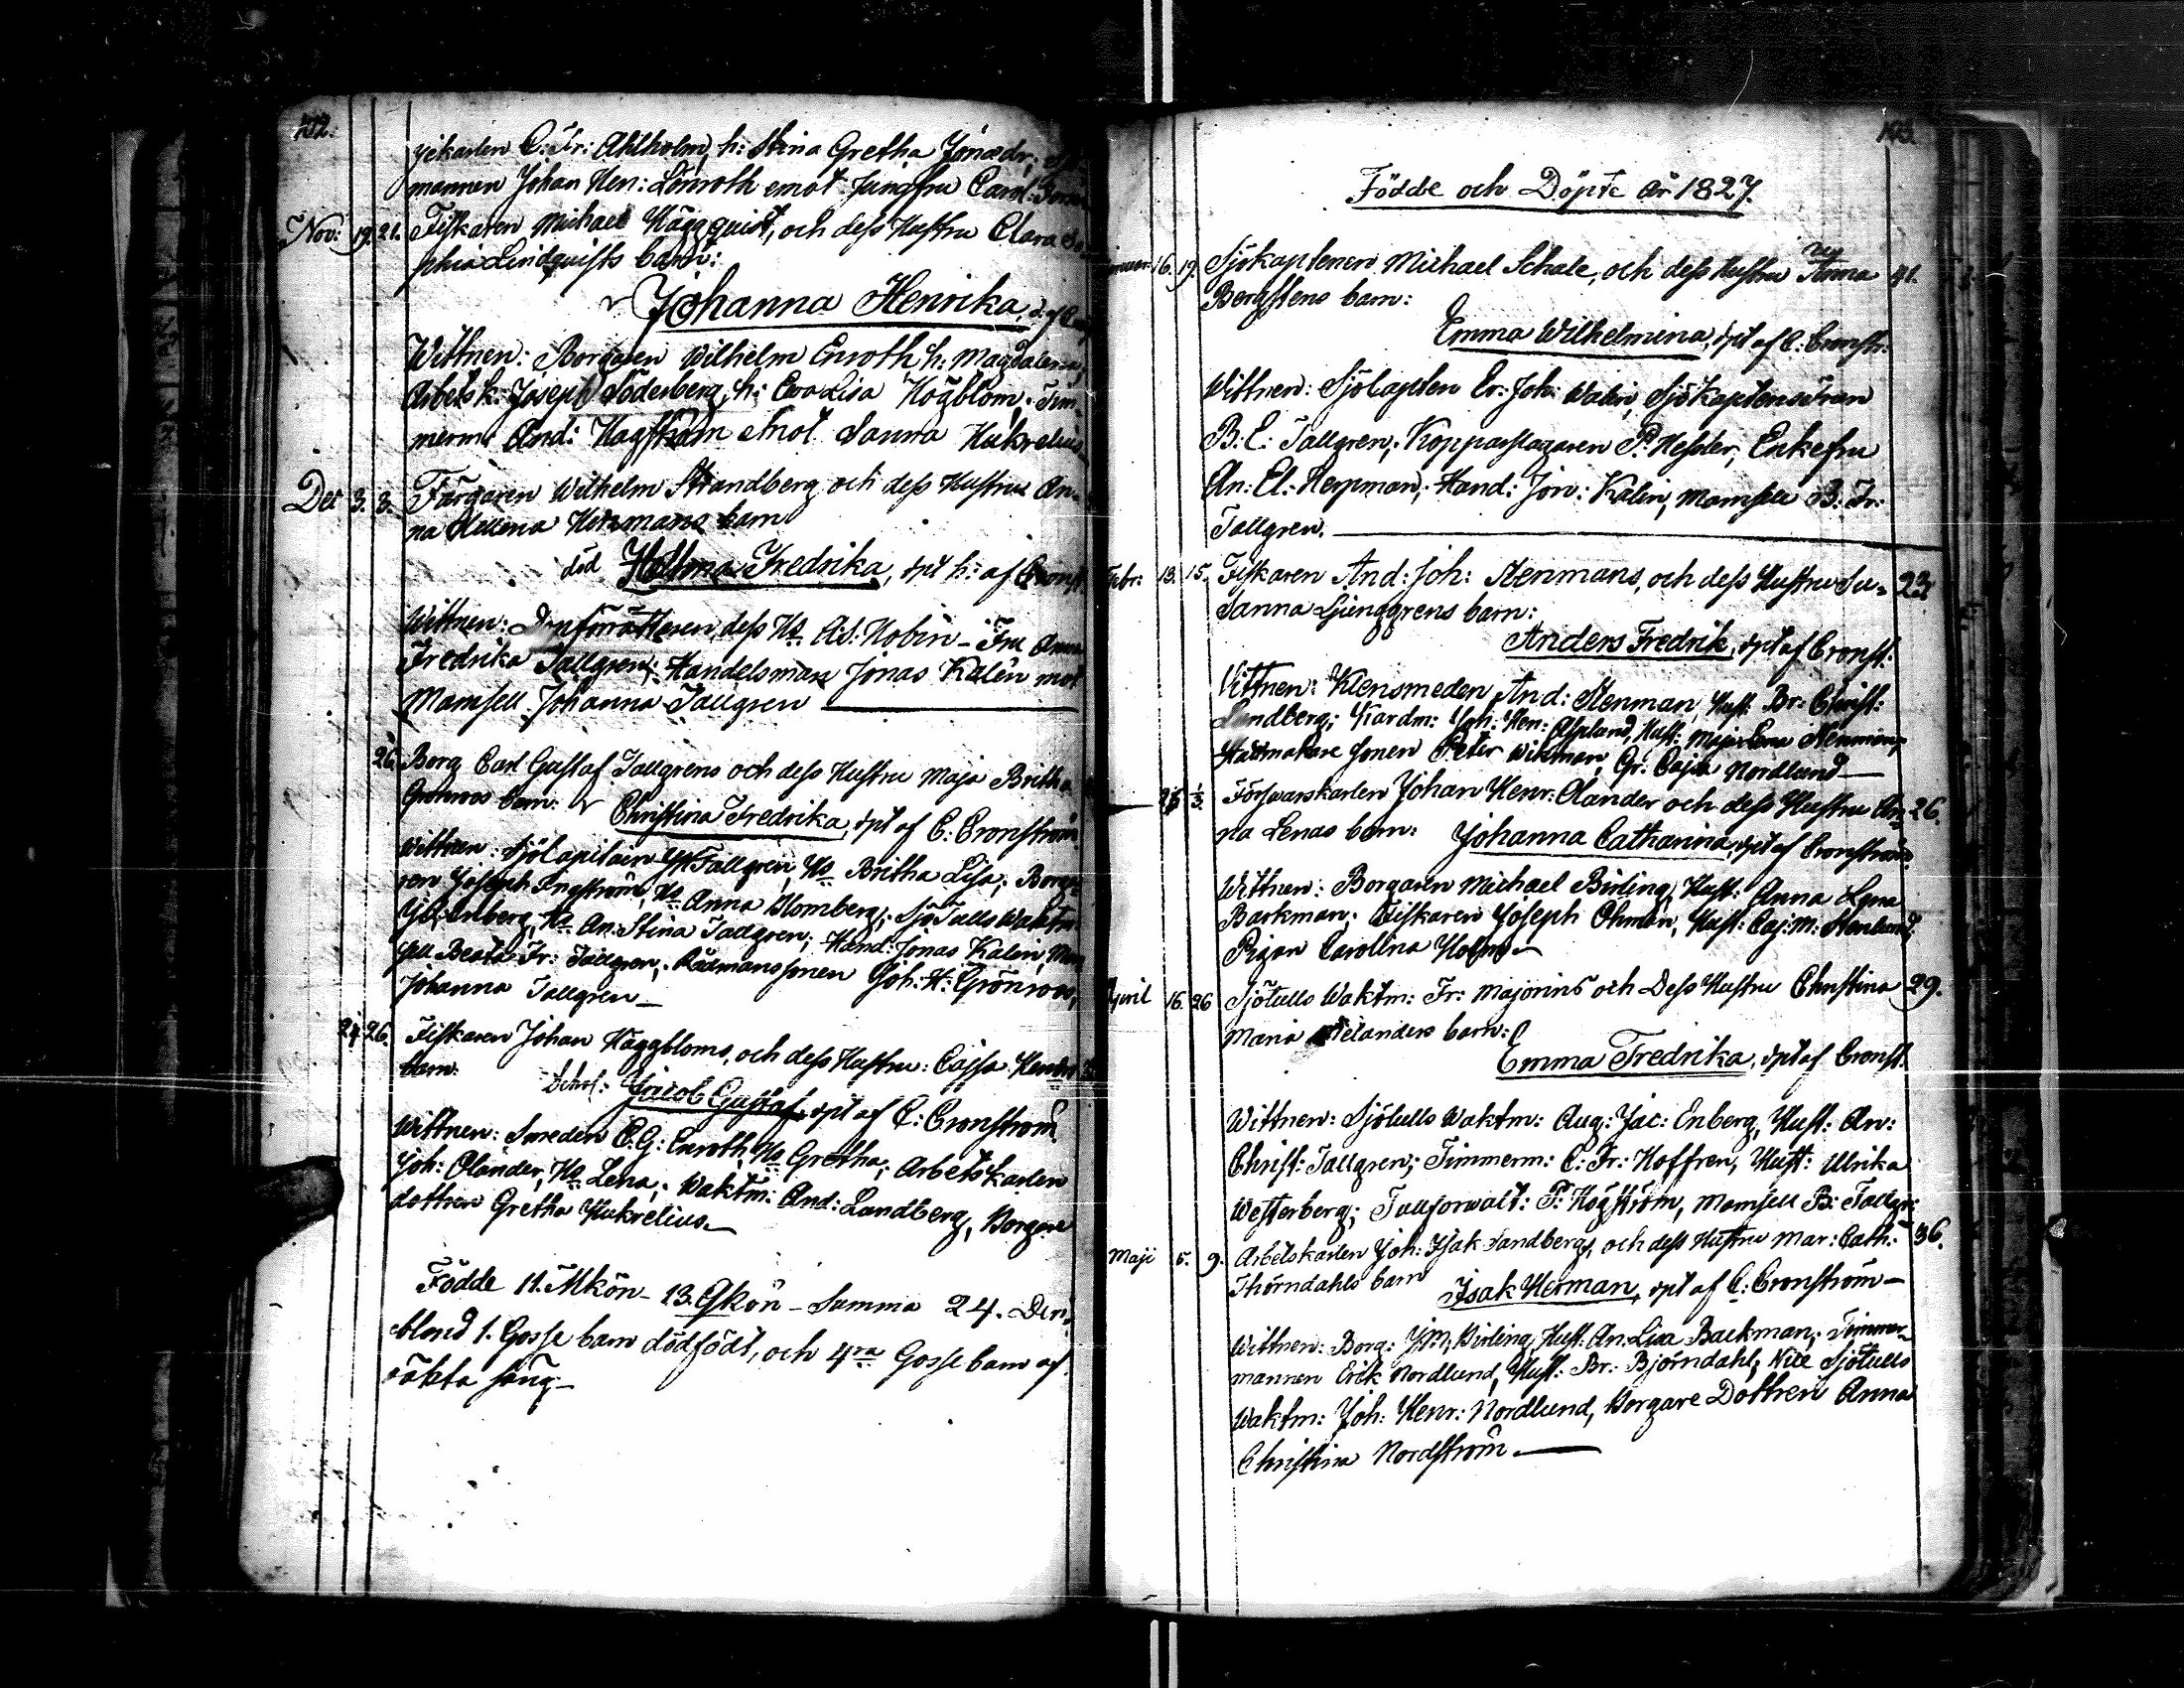 gikarlen C: Fr: Ahlholm, h: Stina Gretha Jönsdr;
mannen Johan Hen: Lönroth emot Jungfru Carol:
Nov: 19. 21. Fiskaren Michael Häggquist, och dess Hustru Clara So-
phia Lindquists barn:
Johanna Henrika,
Wittnen: Borgaren Wilhelm Enroth h: Magdalena;
Arbetsk: Joseph Söderberg, h: Eva Lisa Högblom; Tim-
merm: And: Hagström emot Sanna Hukrelius
Dec 3. 3. Färgaren Wilhelm Strandberg och dess Hustru An-
na Helena barn
död Fredrika, dpt h: af Cronst:
Wittnen: dess Ha Ad: Nobin - Fru Anna
Fredrika Tallgren; Handelsman Jonas Kalén mot
Mamsell Johanna Tallgren
26. Borg Carl Gustaf Tallgrens och dess Hustru Maja Britha
Grönroos barn: Christina Fredrika, dpt af C: Cronström
Wittnen: Sjöcapitain Tallgren, Ha Britha Lisa; Borga-
ren Joseph Engström, Ha Anna Blomberg; SjöTulls Waktm:
Enberg, Ha An: Stina Tallgren; Hand: Jonas Kalén, Mam
sell Beata Fr: Tallgren; Rådmanssonen Joh: H: Grönroos,
Johanna Tallgren
24. 26. Fiskaren Johan Häggbloms, och dess Hustru: Cajsa
barn: Jacob Gustaf, dpt af C: Cronström
Wittnen: Smeden C. G: Enroth, Ha Gretha; Arbetskarlen
Joh: Olander, Ha Lena; Waktm: And: Landberg, Borgare
dottren Gretha Hukrelius
Födde 11. Mkön - 13. Qkön - Summa 24. Deri-
bland 1. Gosse barn dödfödt, och 4ra Gosse barn af
oäkta säng
Födde och Döpte år 1827.
16. 19. Sjökaptenen Michael Schale, och dess Hustru Anna 41.
Bergstens barn:
Emma Wilhelmina, dpt af C: Cronstr:
Wittnen: Sjöcapten Er: Joh: Walin, Sjökaptensfruan
B: E: Tallgren; Kopparslagaren P. Hessler, Enkefru
An: El: Herpman; Hand: Jon: Kalén, Mamsell B: Fr:
Tallgren.
Febr: 13. 15. Fiskaren And: Joh: Stenmans, och dess Hustru Su-
sanna Ljunggrens barn:
Anders Fredrik, dpt af Cronst:
Wittnen: Klensmeden And: Stenman, Hust: Br: Christ:
Landberg; Kardm: Joh: Hen: Asplund, Hust: Maja Lena
Hattmakare sonen Peter Wikman, Gr: Cajsa Nordlund
1/3 Försvarskarlen Johan Henr: Olander och dess Hustru An- 26.
na Lenas barn: Johanna Catharina, dpt af Cronström
Wittnen: Borgaren Michael Birling, Hust: Anna Lena
Backman; Fiskaren Joseph Öhman, Hust: Caj: M: Stenlund,
Pigan Carolina Holm
April 16. 26 Sjötulls Waktm: Fr: Majorins och Dess Hustru Christina 29.
Maria Melanders barn:
Emma Fredrika, dpt af Cronst.
Wittnen: Sjötulls Waktm: Aug: Jac: Enberg, Hust: An:
Christ: Tallgren; Timmerm: C: Fr: Hoffren, Hust: Ulrika
Westerberg; Tullforvalt: P: Högström, Mamsell B: Tallgr:
Maji 5. 9. Arbetskarlen Joh: Isak Sandbergs, och dess Hustru Mar: Cath: 36.
Thörndahls barn Isak Herman, dpt af C: Cronström
Wittnen: Borg: J: M; Birling, Hust: An: Lisa Backman; Timmer-
mannen Erik Nordlund, Hust: Br: Björndahl; Vice Sjötulls
Waktm: Joh: Henr: Nordlund, Borgare Dottren Anna
Christina Nordström